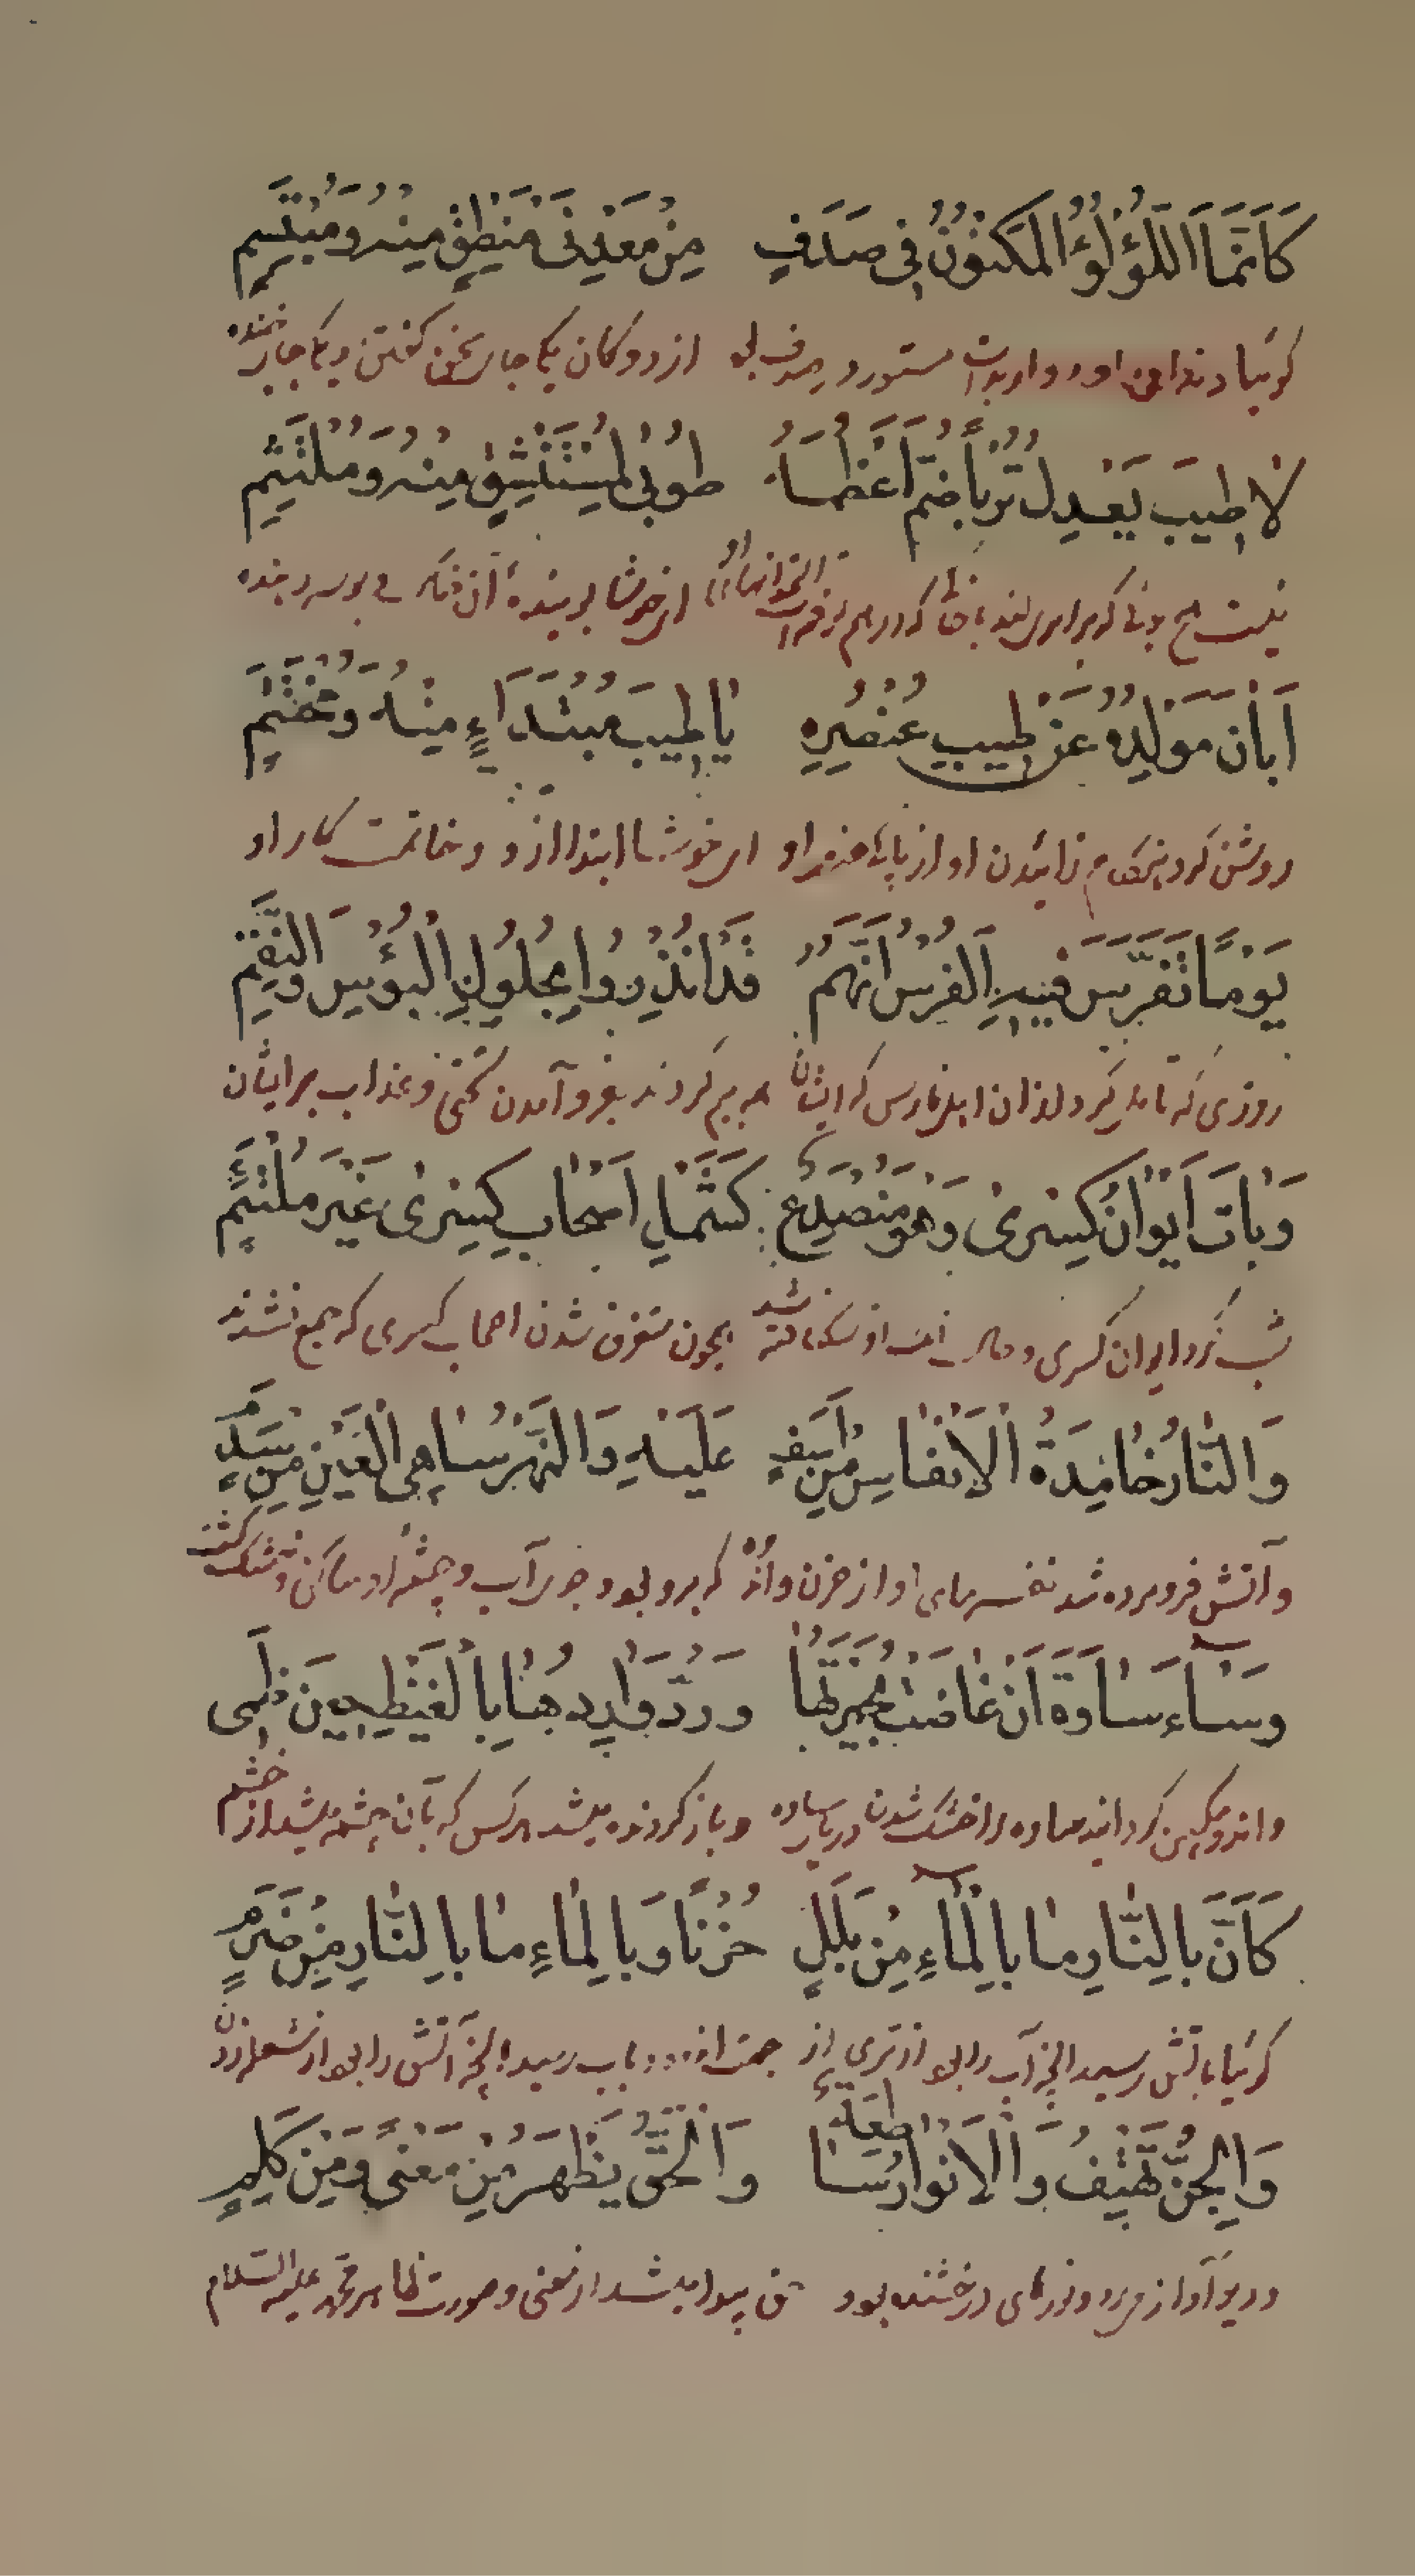 كَاَنَّمَا اللُّؤْلُؤُ الْمَكْنُونُ فِي صَدَفٍ مِنْ مَعْدِنَيْ مَنْطِقٍ مِنْهُ وَمُبْتَسِمٍ
گوئیا دندانهای او مرواریدست مستور در صدف از دو کان یکی جای سخن گفتن و یکی جای خنده
لَا طِيبَ يَعْدِلُ تُرْبًا ضَمَّ اَعْظُمَهُ طُوبٰى لِمُنْتَشِقٍ مِنْهُ وَمُلْتَثِمٍ
نیست هیچ که برابری کند که استخوانهای ای خوشا بوینده آن خاک بوسه دهنده
اَبَانَ مَوْلِدُهُ عَنْ طِيبِ عُنْصُرِهِ يَا طِيبَ مُبْتَدَاءٍ مِنْهُ وَمُخْتَتَمٍ
روشن کرد زائیدن او از او ای خوشا ابتدا از و و خاتمت کار او
يَوْمًا تَفَرَّسَ فِيهِ الْفُرْسُ اَنَّهُمُ قَدْ اُنْذِرُوا بِحُلُولِ الْبُؤْسِ وَالنِّقَمِ
روزی که کرد از ان اهل فارس که ایشان بیم کردند بفرو آمدن سختی و عذاب بر ایشان
وَبَاتَ اَيْوَانُ كِسْرٰى وَهُوَ مُنْصَدِعٌ كَشَمْلِ اَصْحَابِ كِسْرٰى غَيْرَ مُلْتَئِمٍ
شب کرد ایوان کسری و شد همچون متفرق شدن اصحاب کسری که جمع نشدند
وَالنَّارُ خَامِدَةُ الْاَنْفَاسِ مِنْ اَسَفٍ عَلَيْهِ وَالنَّهْرُ سَاهِي الْعَيْنِ مِنْ سَدَمٍ
و آتش فرو مرده شد نفسهای او از حزن و که برو بود جوی آب و چشمه او ساکن و خشک گشت
وَسَاءَ سَاوَةَ اَنْ غَاضَتْ بُحَيْرَتُهَا وَرُدَّ وَارِدُهَا بِالْغَيْظِ حِينَ ظَمِي
و اندوهگین گردانید ساوه را خشک شدن دریای ساوه و باز گردنده میشد هر کس که بآن چشمه میشد از خشم
كَاَنَّ بِالنَّارِ مَا بِالْمَاءِ مِنْ بَلَلٍ حُزْنًا وَبِالْمَاءِ مَا بِالنَّارِ مِنْ ضَرَمٍ
گوئیا بآتش رسید آنچه آب را بود از تری از جهت اندوه و بآب رسید آنچه آتش را بود از شعله زدن
وَالْجِنُّ تَهْتِفُ وَالْاَنْوَارُ سَاطِعَةٌ وَالْحَقُّ يَظْهَرُ مِنْ مَعْنًى وَمِنْ كَلِمٍ
و دیو آواز و نورهای درخشنده بود حق پیدا میشد از معنی و صورت ظاهر محمد علیه السلام